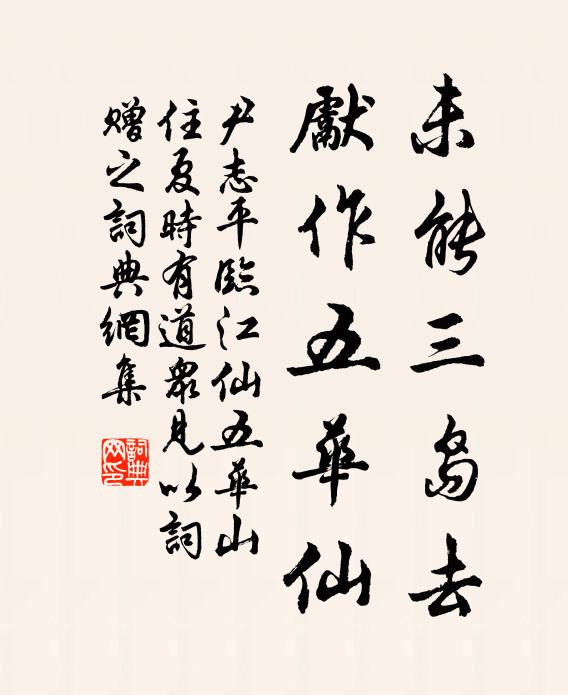 未能三島去
獻作五華仙
尹志平臨江仙五華山
住夏時有道眾見以詞
贈之詞典網集
詞典網印